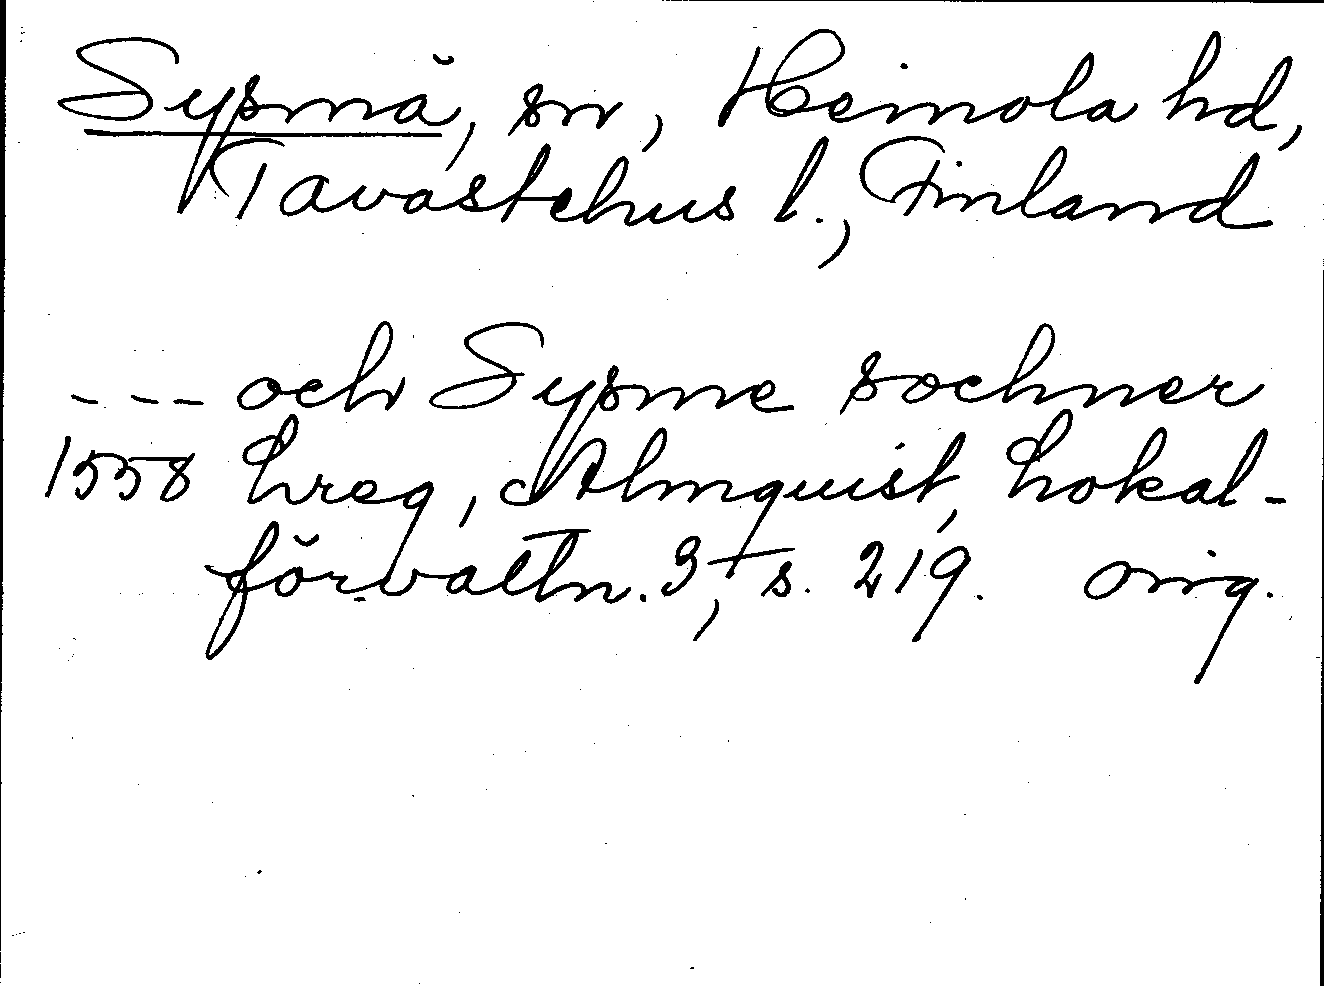 Sysmä, sn, Heinola hd,
Tavastehus l., Finland
--- och Sysme sochner
1558 hreg, Almquist, Lokal-
förvaltn. 3, s. 219. orig.